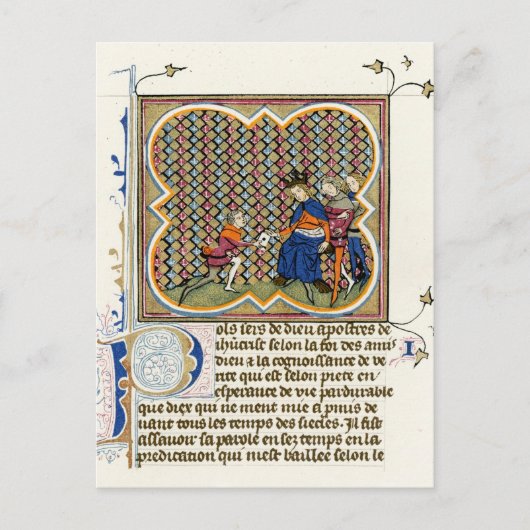 P ols sers de dieu apostres de
ihucrist selon la foi des amis
dieu & la cognoissance de ve
rite qui est selon piete en
esperance de vie pardurable
que diex qui ne ment mie a pmis de
uant tous les temps des siecles. Il fist
assauoir sa parole en sez temps en la
predication qui mest baillee selon le
I